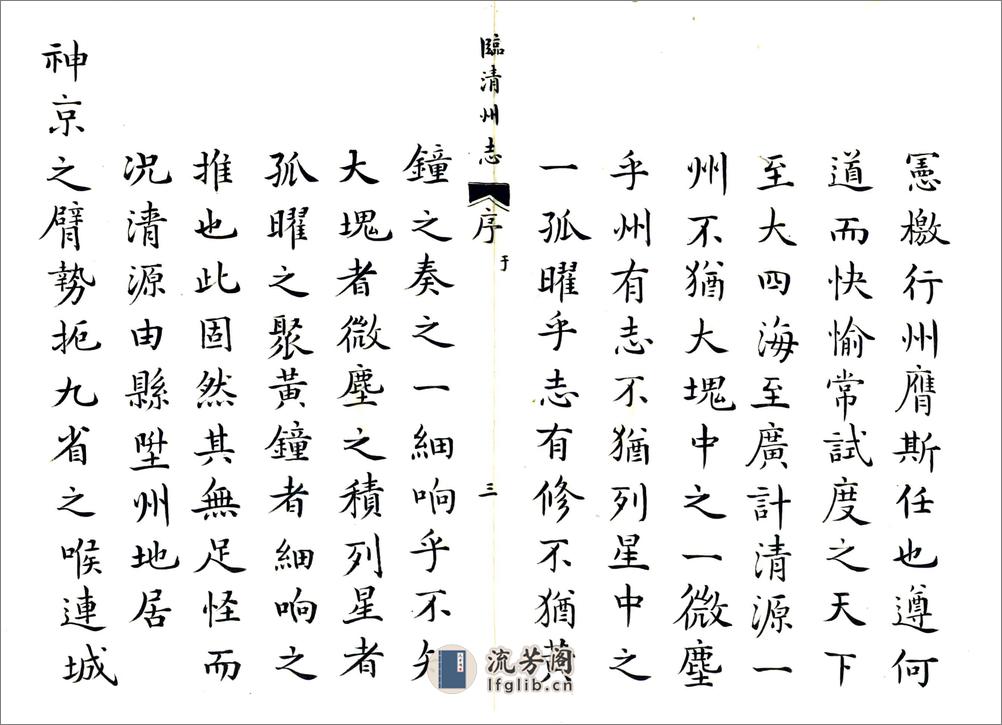 憲檄行州膺斯任也遵何
道而快愉常試度之天下
至大四海至廣計清源一
州不猶大塊中之一微塵
乎州有志不猶列星中之
一孤曜乎志有修不猶黃
臨清州志
序
于
三
鐘之奏之一細响乎不
大塊者微塵之積列星者
孤曜之聚黃鐘者細响之
推也此固然其無足怪而
况清源由縣陞州地居
神京之臂勢扼九省之喉連城
流芳阁
lfglib.cn